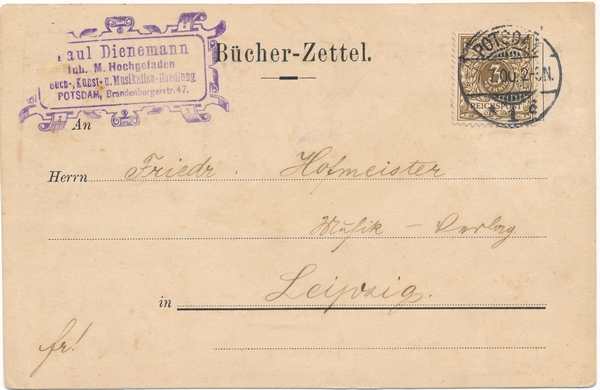 Paul Dienemann
Inh. M. Hochgeladen
Buch-, Kunst- u. Musikalien-Handlung
POTSDAM, Brandenburgerstr. 47.
Bücher-Zettel.
POTSDAM
00. 2-3N.
1
3
REICHSPOST
An
Herrn Friedr. Hofmeister
Musik - Verlag
in Leipzig.
fr!